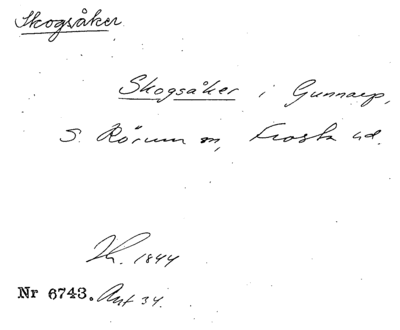 Skogsåker
Skogsåker i Gunnarp,
S. Rörum sn, Frosta hd.
1844
Nr 6743. Ant 34.